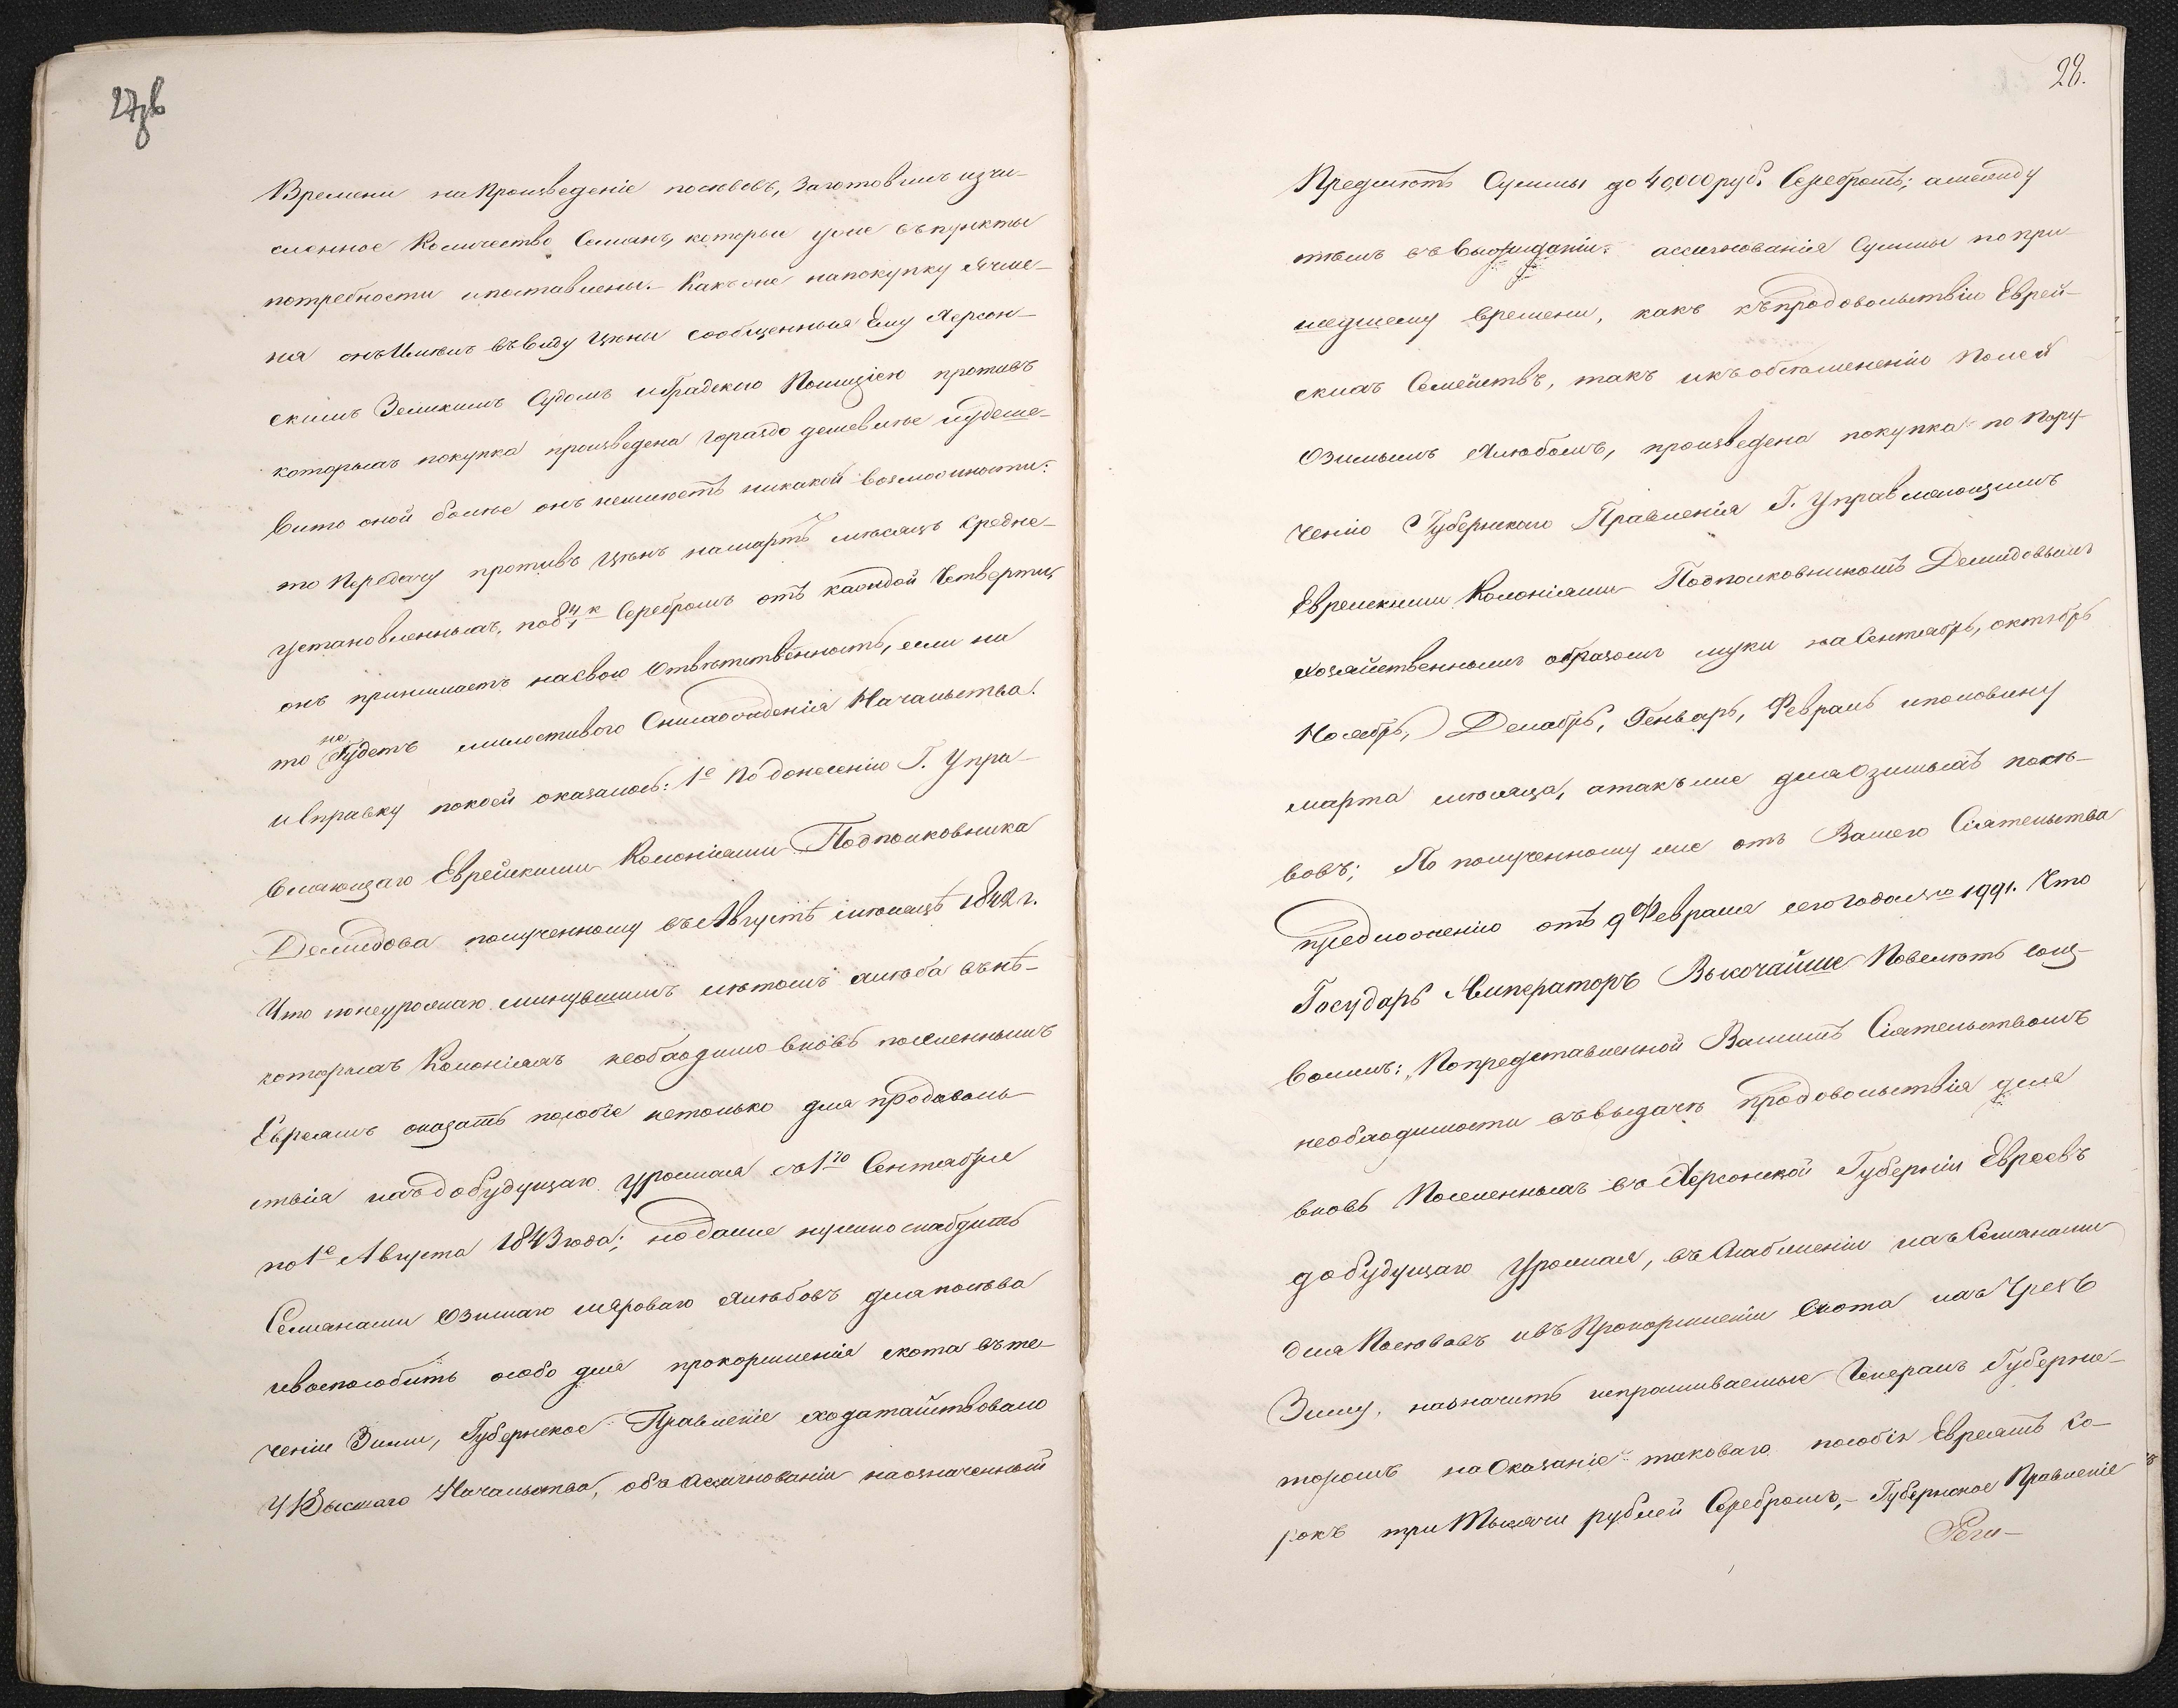 27об
Времени на Произведеніе посѣвовъ, Заготовилъ изчи-
сленное Количество Семянъ, которые уже въ пункты
потребности и поставлены. Какъ же на покупку Ячме-
ня онъ Имѣлъ въ виду Цѣны сообщенныя Ему Херсон-
скимъ Земскимъ Судомъ и Градскою Полиціею противъ
которыхъ покупка произведена гораздо дешевлѣе и удеше-
вить оной болѣе онъ неимѣетъ никакой возможности:
то Передачу противъ Цѣнъ на мартъ мѣсяцъ Средне-
установленныхъ, по 8 к Серебромъ отъ каждой Четверти,
онъ принимаетъ на свою Отвѣтственность, если на
то не будетъ милостиваго Снисхожденія Начальства.
и вправку покоей оказалось: 1е По донесенію Г. Упра-
вляющаго Еврейскими Колоніями Подполковника
Демидова полученному въ Августѣ мѣсяцѣ 1842 г.
Что по неурожаю минувшимъ лѣтомъ хлѣба въ нѣ-
которыхъ Колоніяхъ необходимо вновь поселеннымъ
Евреямъ оказать пособіе нетолько для продоволь-
ствія ихъ до будущаго урожая съ 1го Сентября
по 1е Августа 1843 года; но даже нужно снабдить
Семянами Озимаго и Яроваго хлѣбовъ для посѣва
и воспособить особо для прокормленія скота въ те-
ченіи Зимы, Губернское Правленіе ходатайствовало
У Высшаго Начальства, объ Ассигнованіи на означенный
28.
Предмѣтъ Суммы до 40,000 руб. Серебромъ; а между
тѣмъ въ Выжиданіи ассигнованія Суммы по при-
шедшему времени, какъ къ продовольствію Еврей-
скихъ Семействъ, такъ и къ обсѣмененію Полей
Озимымъ Хлѣбомъ, произведена покупка по Пору-
ченію Губернскаго Правленія Г. Управляющимъ
Еврейскими Колоніями Подполковникомъ Демидовымъ
хозяйственнымъ образомъ муки на Сентябрь, октябрь
Ноябрь, Декабрь, Генварь, Февраль и половину
марта мѣсяца, а также для Озимыхъ посѣ-
вовъ; По полученному же отъ Вашего Сіятельства
предложенію отъ 9 Февраля сего года за № 1991. Что
Государь Императоръ Высочайше Повелѣть соиз-
волилъ: По представленной Вашимъ Сіятельствомъ
необходимости въ выдачѣ продовольствія для
вновь Поселенныхъ въ Херсонской Губерніи Евреевъ
до будущаго Урожая, въ Снабженіи ихъ Семянами
для Посѣвовъ и въ Прокормленіи Скота ихъ Чрезъ
Зиму, назначить испрашиваемые Генералъ Губерна-
торомъ на Оказаніе таковаго пособія Евреямъ Со-
рокъ три Тысячи рублей Серебромъ, - Губернское Правленіе